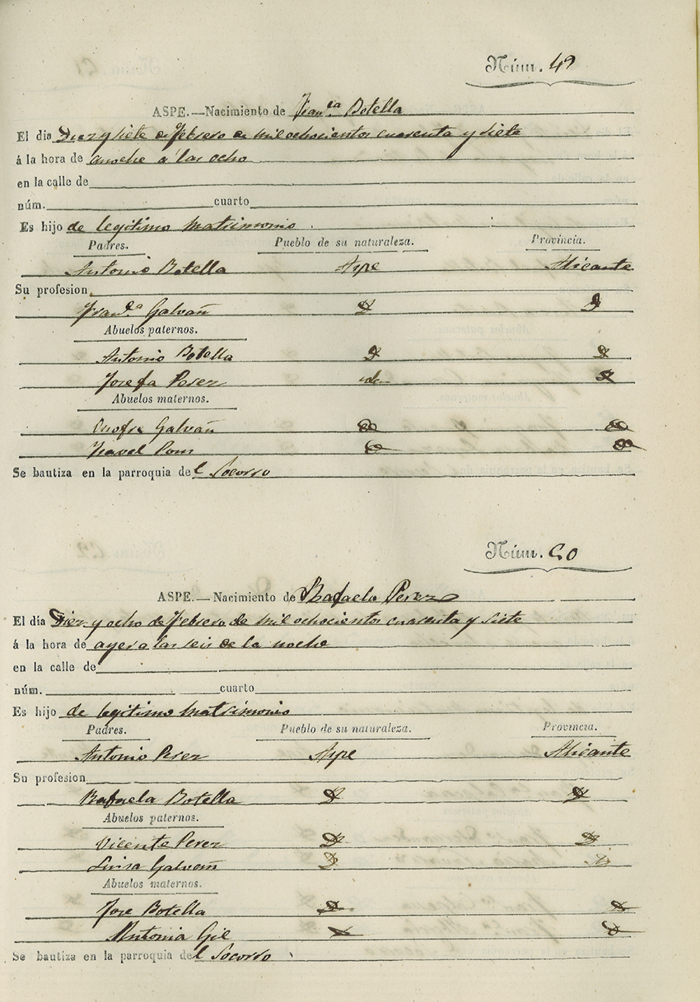 Núm. 49
ASPE.—Nacimiento de Fran.ca Botella
El dia Diez y siete de Febrero de mil ochocientos cuarenta y siete
á la hora de anoche a las ocho
en la calle de
núm. cuarto
Es hijo de legitimo matrimonio
Padres. Pueblo de su naturaleza. Provincia.
Antonio Botella Aspe Alicante
Su profesion
Fran.ca Galvañ
Abuelos paternos.
Antonio Botella
Josefa Perez
Abuelos maternos.
Onofre Galvañ
Isavel Pons
Se bautiza en la parroquia del Socorro
Núm. 50
ASPE.—Nacimiento de Rafaela Perez
El dia Diez y ocho de Febrero de mil ochocientos cuarenta y siete
á la hora de ayer a las seis de la noche
en la calle de
núm. cuarto
Es hijo de legitimo matrimonio
Padres. Pueblo de su naturaleza. Provincia.
Antonio Perez Aspe Alicante
Su profesion
Rafaela Botella
Abuelos paternos.
Vicente Perez
Luisa Galvañ
Abuelos maternos.
Jose Botella
Antonia Gil
Se bautiza en la parroquia del Socorro